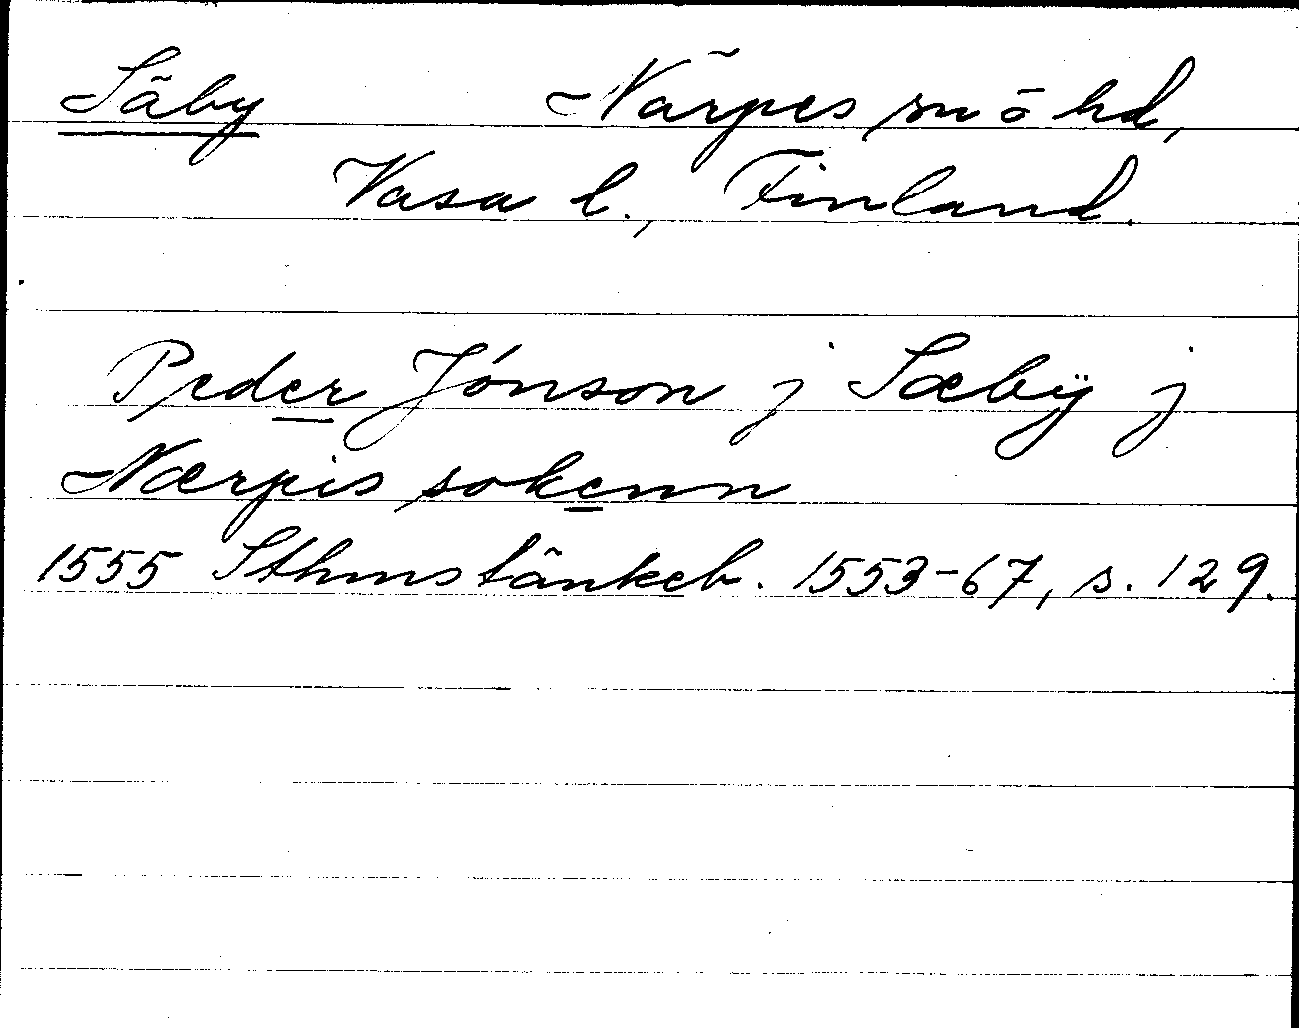 Säby Närpes sn o hd,
Vasa l., Finland.
Peder Jónson j Sæbÿ j
Nærpis sokenn
1555 Sthms tänkeb. 1553-67, s. 129.